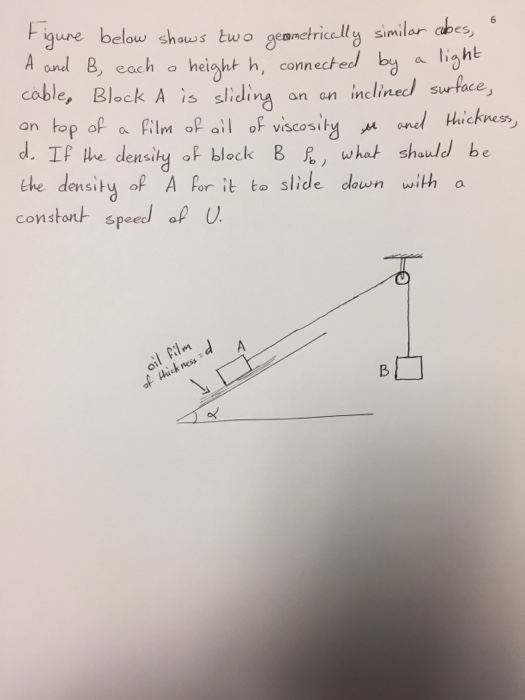 Figure below shows two geometrically similar cubes, 6
A and B, each a height h, connected by a light
cable, Block A is sliding on an inclined surface,
on top of a film of oil of viscosity μ and thickness,
d. If the density of block B ρb, what should be
the density of A for it to slide down with a
constant speed of U.
oil film
of thickness = d
A
B
α